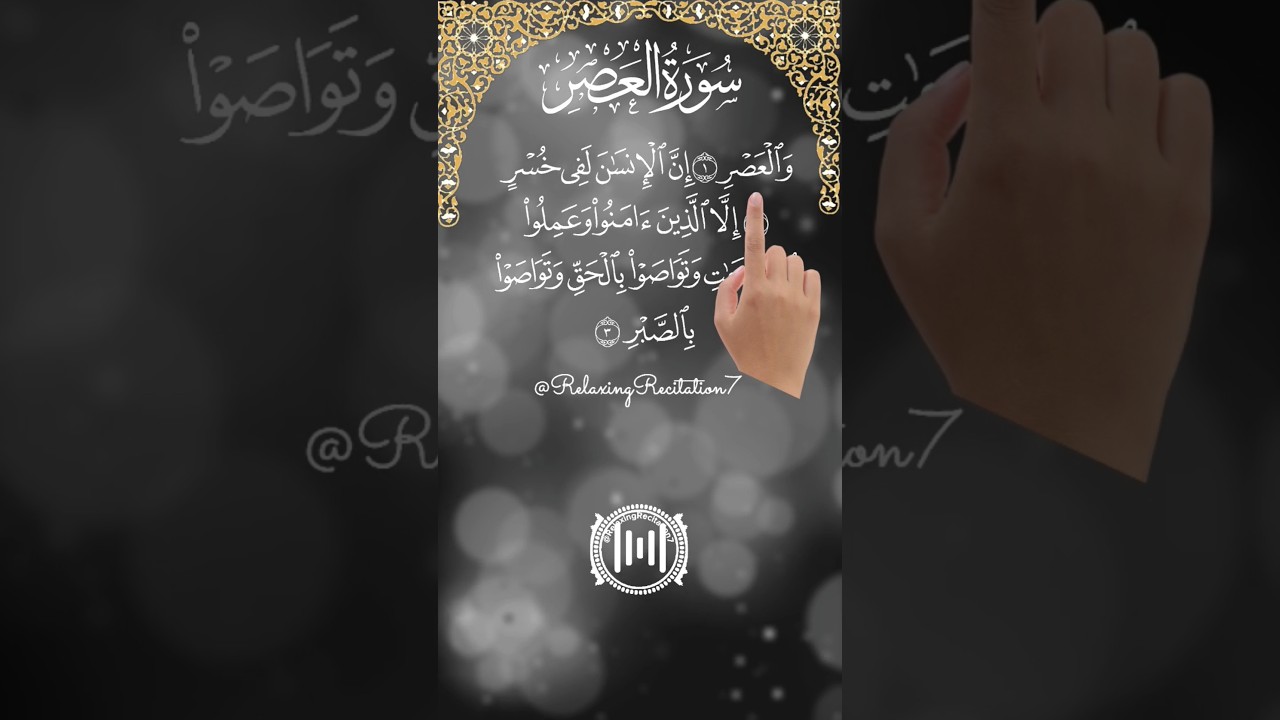 سُورَةُ العَصْرِ
وَٱلْعَصْرِ ١ إِنَّ ٱلْإِنسَٰنَ لَفِى خُسْرٍ
إِلَّا ٱلَّذِينَ ءَامَنُوا۟ وَعَمِلُوا۟
وَتَوَاصَوْا۟ بِٱلْحَقِّ وَتَوَاصَوْا۟
بِٱلصَّبْرِ ٣
@RelaxingRecitation7
@RelaxingRecitation7